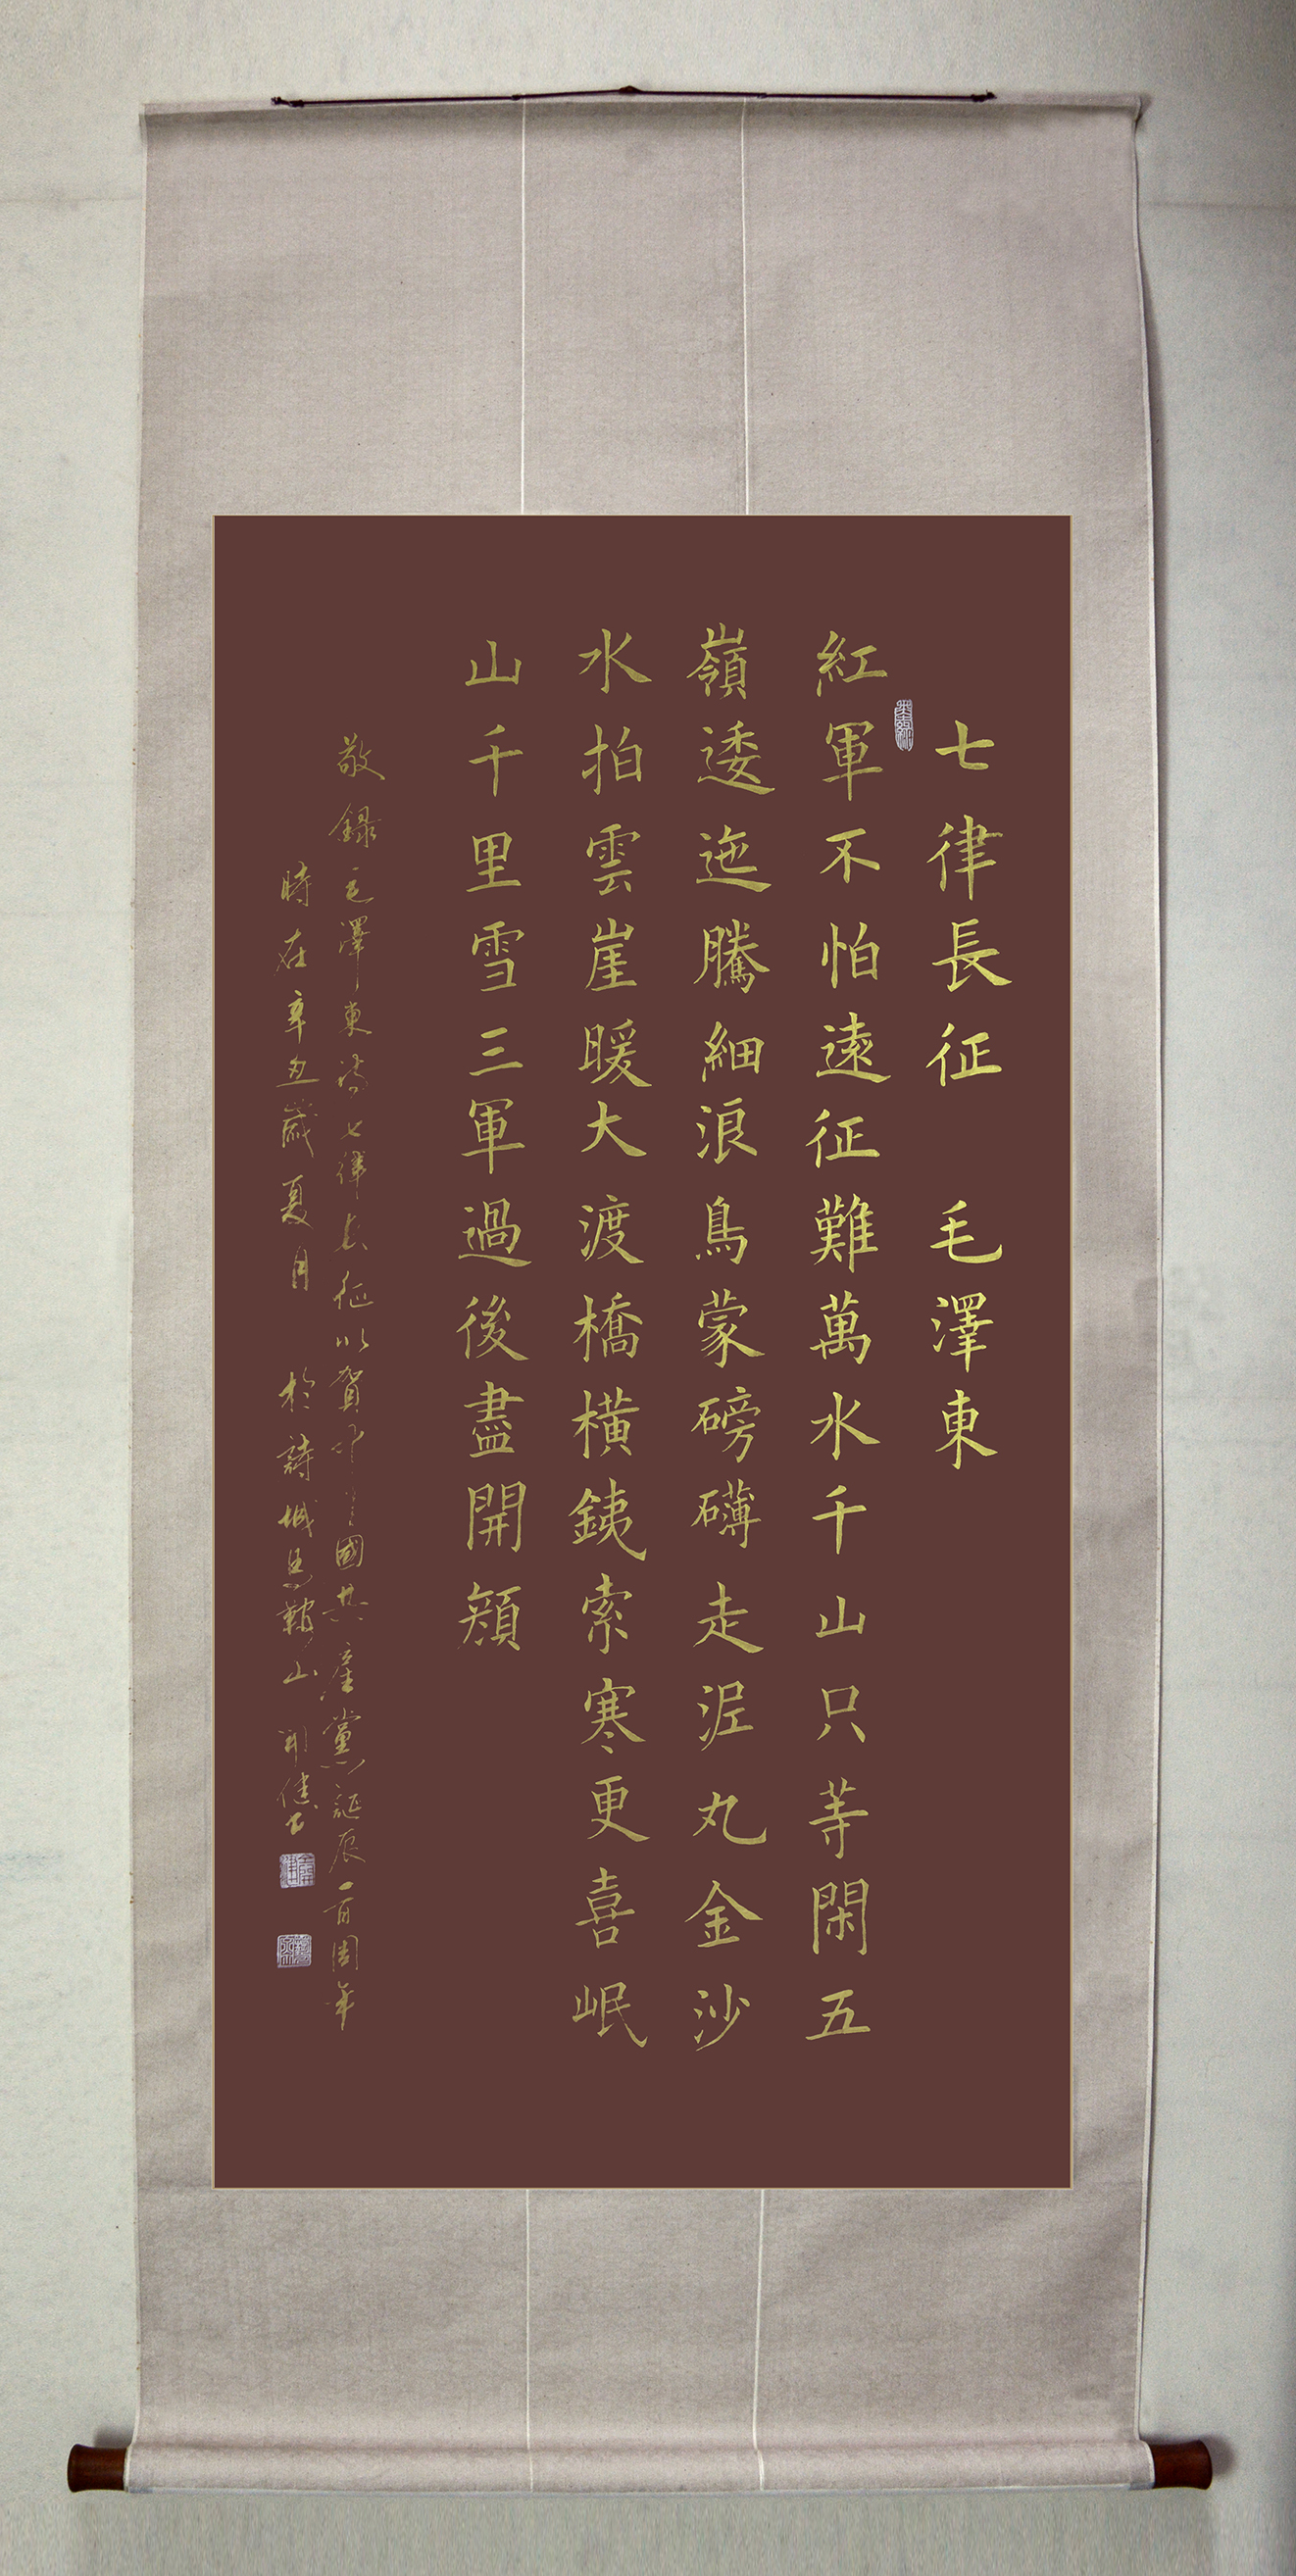 七律長征 毛澤東
紅軍不怕遠征難萬水千山只等閑五
嶺逶迤騰細浪烏蒙磅礴走泥丸金沙
水拍雲崖暖大渡橋橫鐵索寒更喜岷
山千里雪三軍過後盡開顏
敬錄毛澤東詩七律長征以賀中國共產黨誕辰一百周年
時在辛丑歲夏月 於詩城馬鞍山